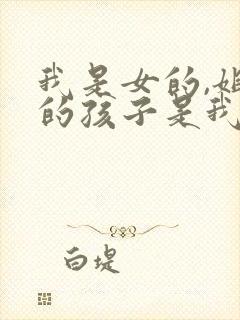 我是女的,姐
的孩子是我
白堤